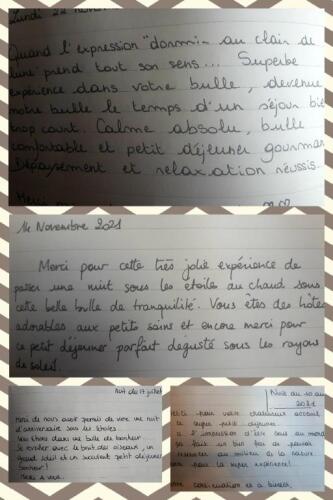 Lundi 22 nove
Quand l'expression "dormir au clair de
lune" prend tout son sens... Superbe
expérience dans votre bulle, devenue
notre bulle le temps d'un séjour bien
trop court. Calme absolu, bulle
confortable et petit déjeuner gourman
Dépaysement et relaxation réussis.
14 Novembre 2021
Merci pour cette très jolie expérience de
passer une nuit sous les étoiles au chaud sous
cette belle bulle de tranquilité. Vous êtes des hôtes
adorables aux petits soins et encore merci pour
ce petit déjeuner parfait degusté sous les rayons
de soleil.
Nuit du 17 juillet
Merci de nous avoir permis de vivre une nuit
d'anniversaire sous les étoiles.
Nous étions dans une bulle de bonheur.
Se réveiller avec le bruit des oiseaux, un
ideal et un excellent petit déjeuner
Bonheur!
Nuit du 10 au
2021
pour votre chaleureux accueil
super petit déjeuner.
a l'impression d'être seus au monde
ça fait un bien fou de pouvoir
ressourcer au milieu de la nature.
pour la super expérience!
continuation et à bientôt